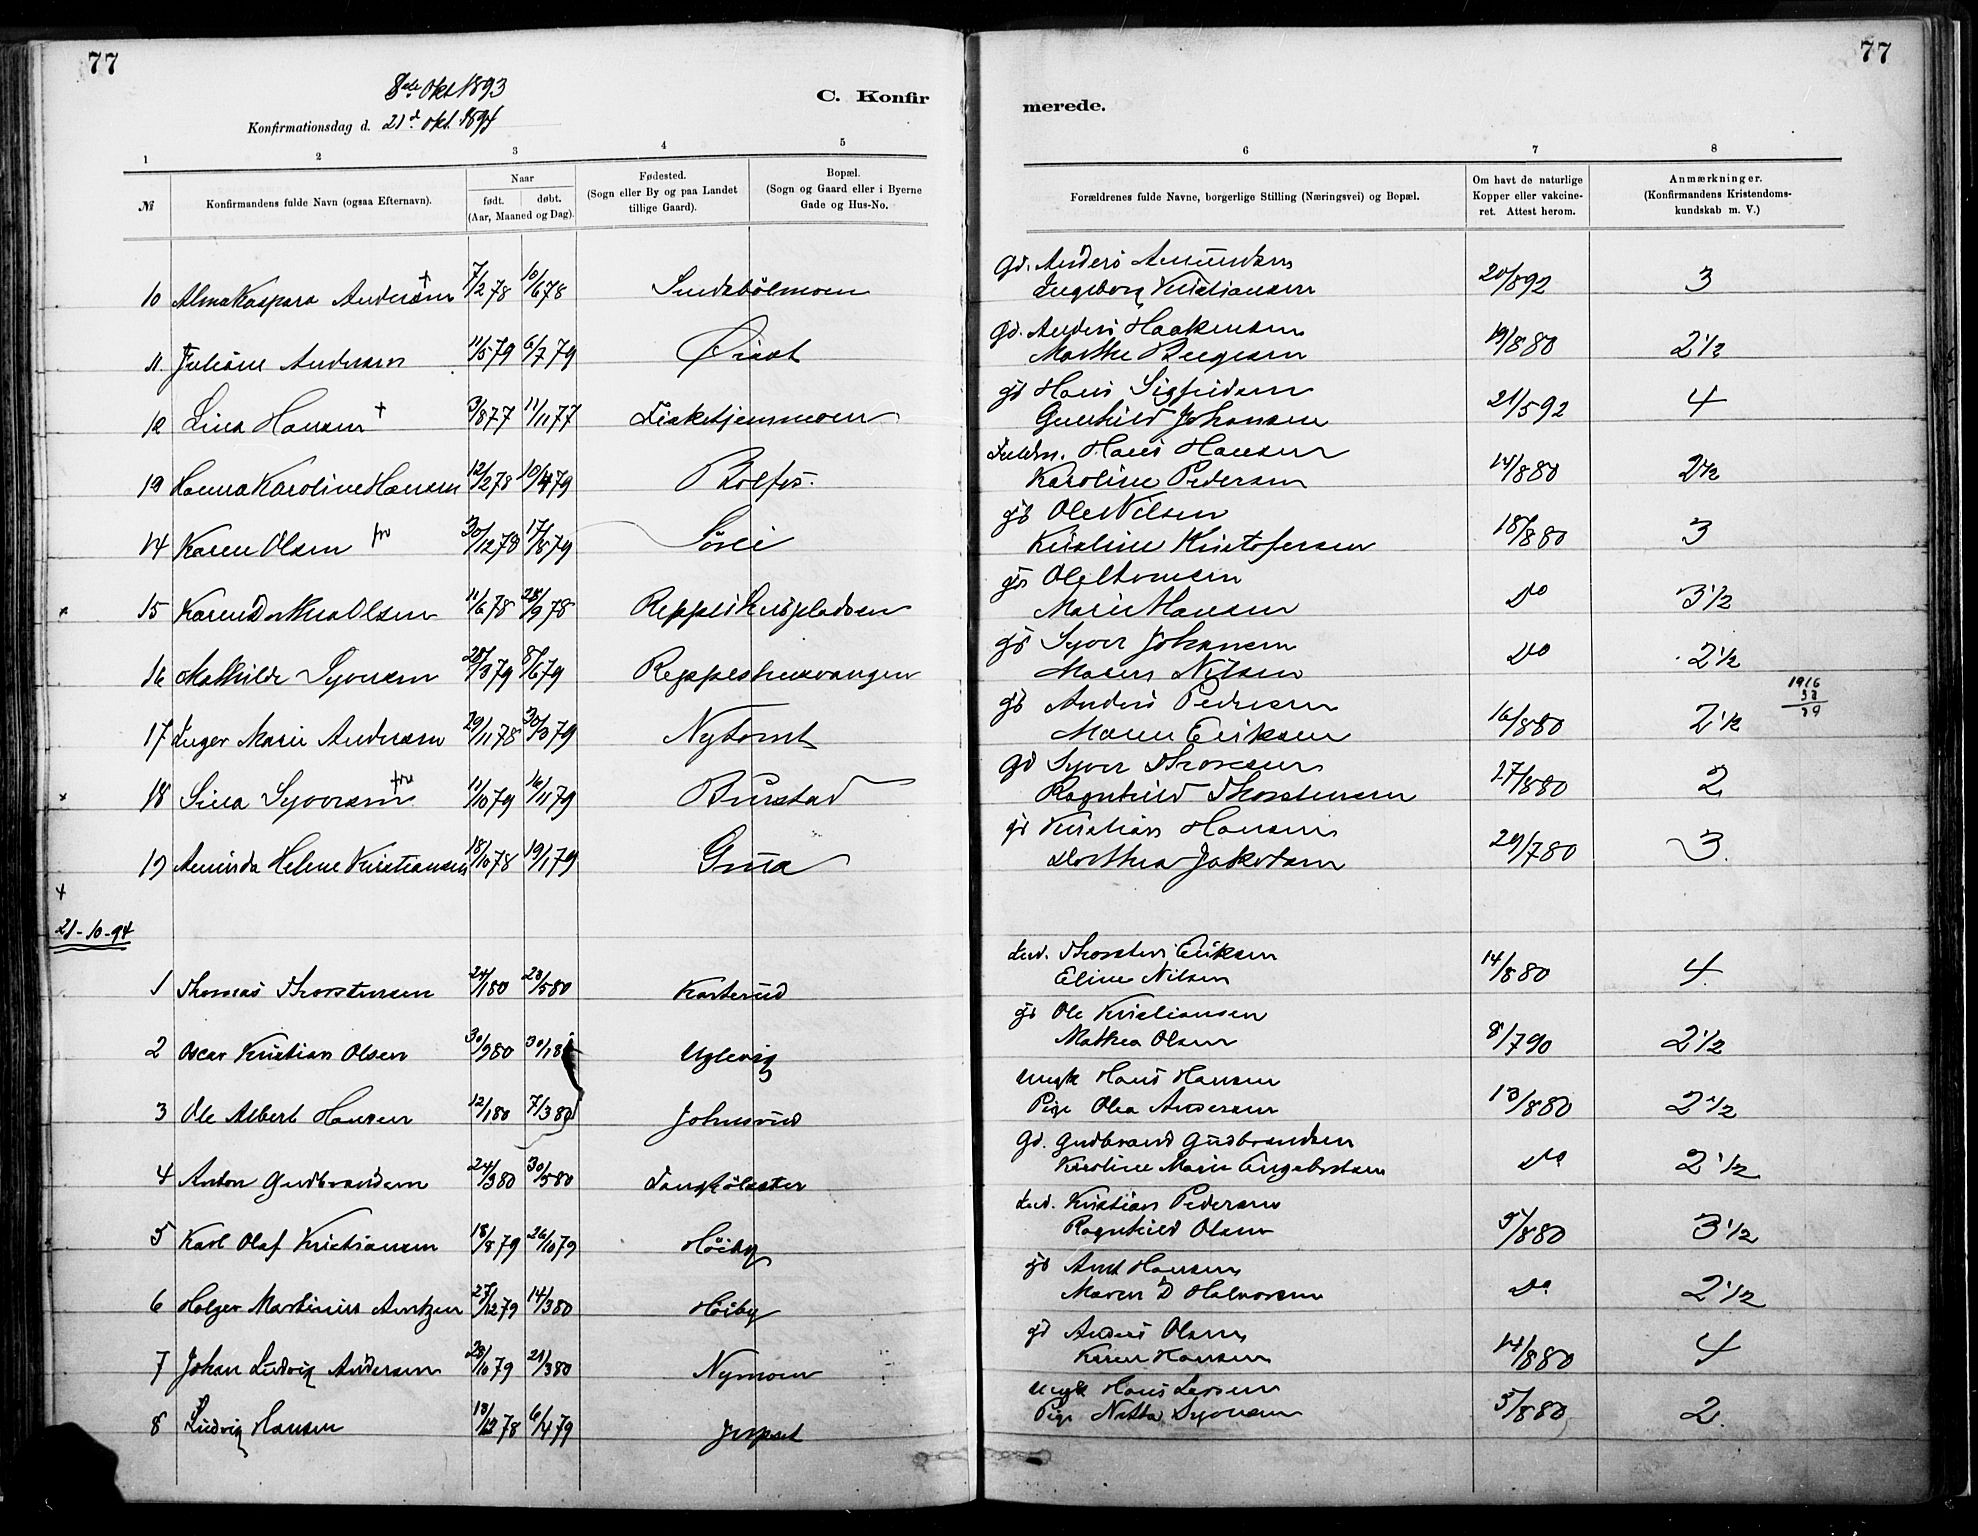 77
77
8de Okt 1893
C. Konfir
merede.
Konfirmationsdag d. 21d. Okt. 1894
1 2 3 4 5 6 7 8
№
Konfirmandens fulde Navn (ogsaa Efternavn).
Naar
født. døbt.
(Aar, Maaned og Dag).
Fødested.
(Sogn eller By og paa Landet
tillige Gaard).
Bopæl.
(Sogn og Gaard eller i Byerne
Gade og Hus-No.
Forældrenes fulde Navne, borgerlige Stilling (Næringsvei) og Bopæl.
Om havt de naturlige
Kopper eller vakcine-
ret. Attest herom.
Anmærkninger.
(Konfirmandens Kristendoms-
kundskab m. V.)
Gd. Anders Amundsen
10 Alma Kaspara Andersen + 7/2 78 10/6 78 Ingeborg Kristiansen 20/8 92 3
Gd. Anders Haakensen
11 Juliane Andersen 11/5 79 6/7 79 Marthe 19/8 80 2 1/2
gd Hans Sigfridsen
12 Lina Hansen + 3/8 77 11/11 77 Fisketjernmoen Gunhild Johansen 21/5 92 4
Hans Hansen
13 Hanna Karoline Hansen 12/2 78 10/4 79 Rolfs. Karoline Pedersen 14/8 80 2 1/2
gd Ole Nilsen
14 Karen Olsen fra 30/12 78 17/8 79 Sørli Kristine Kristofersen 18/8 80 3
gd
15 Karen Dorthea Olsen 11/6 78 28/9 78 Marie Hansen Do 3 1/2
gd Syver Johansen
16 Mathilde Syversen 28/3 79 8/6 79 Maren Nilsen Do 2 1/2
1916
gd Anders Pedersen
17 Inger Marie Andersen 29/11 78 Nytomt Maren Eriksen 16/8 80 2 1/2
Gd Syver Thoresen
18 Lina Syversen fra 11/10 79 16/11 79 Burstad Ragnhild Thorstensen 27/8 80 2
gd Kristian Hansen
19 Aminda Helene Kristiansen 18/10 78 19/1 79 Grua Dorthea Jakobsen 29/7 80 3.
21-10-94
Ind. Thorsten Eriksen
1 Thomas Thorstensen 24/1 80 23/5 80 Kasterud Eline Nilsen 14/8 80 4
gd Ole Kristiansen
2 Oscar Kristian Olsen 30/9 80 Uglevig Mathea Olsen 8/7 90 2 1/2
Ungk Hans Hansen
3 Ole Albert Hansen 12/1 80 7/3 80 Johnsrud Pige Olea Andersen 13/8 80 2 1/2
Gd. Gudbrand Gudbrandsen
4 Anton Gudbrandsen 24/3 80 30/5 80 Karoline Marie Engebretsen Do 2 1/2
Ind. Kristian Pedersen
5 Karl Olaf Kristiansen 18/8 79 26/10 79 Høiby Ragnhild Olsen 5/8 80 3 1/2
gd Arnt Hansen
6 Holger Martinius Arntzen 27/12 79 14/3 80 Høiby Maren D Halvorsen Do 2 1/2
gd Anders Olsen
7 Johan Ludvig Andersen 28/10 79 21/3 80 Nymoen Karen Hansen 14/8 80 4
Ungk Hans Larsen
8 Ludvig Hansen 13/12 78 6/4 79 Pige Syversen 5/8 80 2.